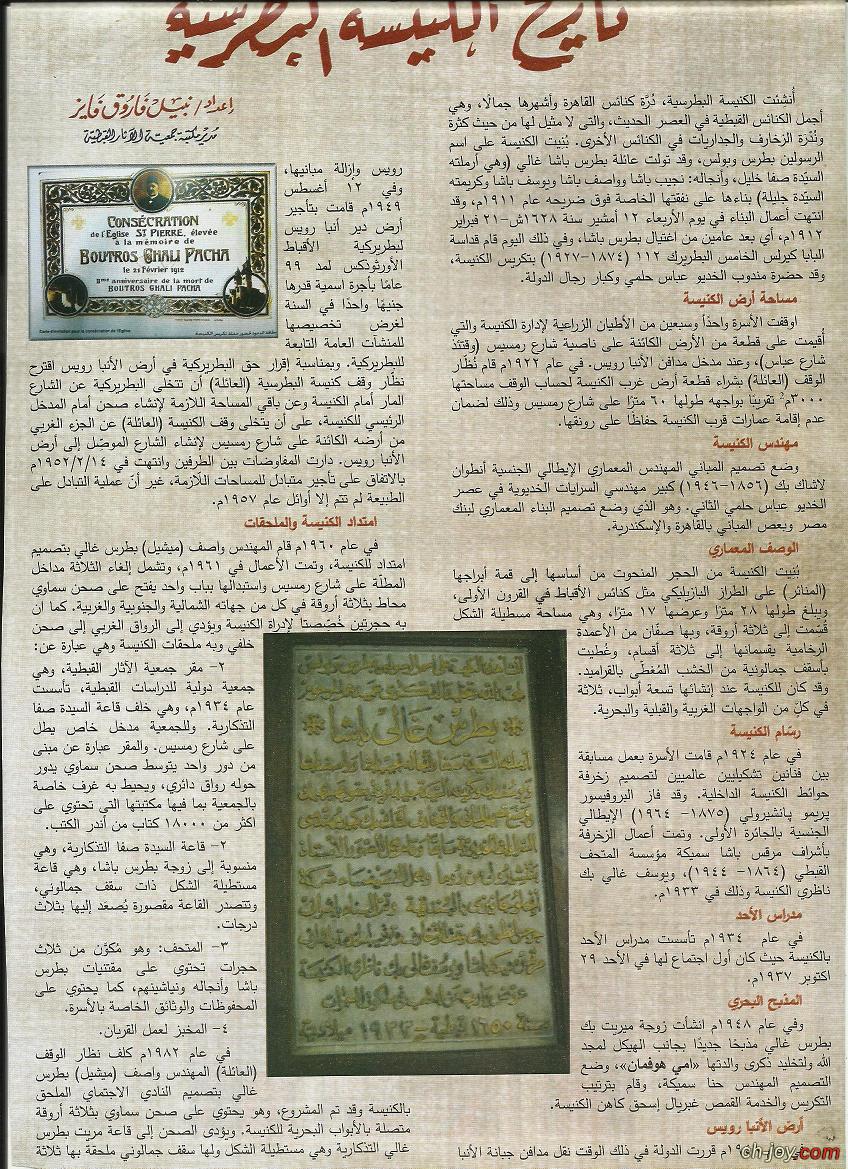 تاريخ الكنيسة البطرسية
إعداد/ نبيل فاروق فايز
مدير مكتبة جمعية الآثار القبطية
أنشئت الكنيسة البطرسية، دُرَّة كنائس القاهرة وأشهرها جمالًا، وهي
أجمل الكنائس القبطية في العصر الحديث، والتى لا مثيل لها من حيث كثرة
ونُدْرَة الزخارف والجداريات في الكنائس الأخرى. بُنِيت الكنيسة على اسم
الرسولين بطرس وبولس، وقد تولت عائلة بطرس باشا غالي (وهي أرملته
السيّدة صفا خليل، وأنجاله: نجيب باشا وواصف باشا ويوسف باشا وكريمته
السيّدة جليلة) بناءها على نفقتها الخاصة فوق ضريحه عام ١٩١١م، وقد
انتهت أعمال البناء في يوم الأربعاء ١٢ أمشير سنة ١٦٢٨ش-٢١ فبراير
١٩١٢م، أي بعد عامين من اغتيال بطرس باشا، وفي ذلك اليوم قام قداسة
البابا كيرلس الخامس البطريرك ١١٢ (١٨٧٤-١٩٢٧) بتكريس الكنيسة،
وقد حضرة مندوب الخديو عباس حلمي وكبار رجال الدولة.
مساحة أرض الكنيسة
اوقفت الأسرة واحداً وسبعين من الأطيان الزراعية لإدارة الكنيسة والتي
أُقيمت على قطعة من الأرض الكائنة على ناصية شارع رمسيس (وقتئذ
شارع عباس)، وعند مدخل مدافن الأنبا رويس. في عام ١٩٢٢م قام نُظّار
الوقف (العائلة) بشراء قطعة أرض غرب الكنيسة لحساب الوقف مساحتها
٣٠٠٠م٢ تقريبًا بواجهه طولها ٦٠ مترًا على شارع رمسيس وذلك لضمان
عدم إقامة عمارات قرب الكنيسة حفاظًا على رونقها.
مهندس الكنيسة
وضع تصميم المباني المهندس المعماري الإيطالي الجنسية أنطوان
لاشاك بك (١٨٥٦-١٩٤٦) كبير مهندسي السرايات الخديوية في عصر
الخديو عباس حلمي الثاني. وهو الذي وضع تصميم البناء المعماري لبنك
مصر وبعص المباني بالقاهرة والإسكندرية.
الوصف المعماري
بُنِيت الكنيسة من الحجر المنحوت من أساسها إلى قمة أبراجها
(المنائر) على الطراز البازيليكي مثل كنائس الأقباط في القرون الأولى،
ويبلغ طولها ٢٨ مترًا وعرضها ١٧ مترًا، وهي مساحة مسطيلة الشكل
قسّمت إلى ثلاثة أروقة، وبها صفّان من الأعمدة
الرخامية يقسمانها إلى ثلاثة أقسام، وغُطيت
بأسقف جمالونية من الخشب المُغطّى بالقراميد.
وقد كان للكنيسة عند إنشائها تسعة أبواب، ثلاثة
في كل من الواجهات الغربية والقبلية والبحرية.
رسّام الكنيسة
في عام ١٩٢٤م قامت الأسرة بعمل مسابقة
بين فنانين تشكيليين عالميين لتصميم زخرفة
حوائط الكنيسة الداخلية. وقد فاز البروفيسور
بريمو پانشيرولي (١٨٧٥- ١٩٦٤) الإيطالي
الجنسية بالجائزة الأولى. وتمت أعمال الزخرفة
بأشراف مرقس باشا سميكة مؤسسة المتحف
القبطي (١٨٦٤- ١٩٤٤)، ويوسف غالي بك
ناظري الكنيسة وذلك في ١٩٣٣م.
مدراس الأحد
في عام ١٩٣٤م تأسست مدراس الأحد
بالكنيسة حيث كان أول اجتماع لها في الأحد ٢٩
اكتوبر ١٩٣٧م.
المذبح البحري
وفي عام ١٩٤٨م انشأت زوجة ميريت بك
بطرس غالي مذبحًا جديدًا بجانب الهيكل لمجد
الله ولتخليد ذكرى والدتها «امي هوفمان»، وضع
التصميم المهندس حنا سميكة، وقام بترتيب
التكريس والخدمة القمص غبريال إسحق كاهن الكنيسة.
أرض الأنبا رويس
قررت الدولة في ذلك الوقت نقل مدافن جبانة الأنبا
رويس وإزالة مبانيها،
وفي ١٢ أغسطس
١٩٤٩م قامت بتأجير
أرض دير أنبا رويس
لبطريركية الأقباط
الأورثوذكس لمد ٩٩
عامًا بأجرة اسمية قدرها
جنيهًا واحدًا في السنة
لغرض تخصيصها
للمنشات العامة التابعة
للبطريركية. وبمناسبة إقرار حق البطريركية في أرض الأنبا رويس اقترح
نظّار وقف كنيسة البطرسية (العائلة) أن تتخلى البطريركية عن الشارع
المار أمام الكنيسة وعن باقي المساحة اللازمة لإنشاء صحن أمام المدخل
الرئيسي للكنيسة، على أن يتخلى وقف الكنيسة (العائلة) عن الجزء الغربي
من أرضه الكائنة على شارع رمسيس لإنشاء الشارع الموصّل إلى أرض
الأنبا رويس. دارت المفاوضات بين الطرفين وانتهت في ١٩٥٢/٢/١٤م
بالاتفاق على تأجير متبادل للمساحات اللازمة، غير أنّ عملية التبادل على
الطبيعة لم تتم إلا أوائل عام ١٩٥٧م.
امتداد الكنيسة والملحقات
في عام ١٩٦٠م قام المهندس واصف (ميشيل) بطرس غالي بتصميم
امتداد للكنيسة، وتمت الأعمال في ١٩٦١م، وتشمل إلغاء الثلاثة مداخل
المطلّة على شارع رمسيس واستبدالها بباب واحد يفتح على صحن سماوي
محاط بثلاثة أروقة في كل من جهاته الشمالية والجنوبية والغربية. كما ان
به حجرتين خُصّصتا لإدراة الكنيسة ويؤدى إلى الرواق الغربي إلى صحن
خلفي وبه ملحقات الكنيسة وهي عبارة عن:
٢- مقر جمعية الآثار القبطية، وهي
جمعية دولية للدراسات القبطية، تأسست
عام ١٩٣٤م، وهي خلف قاعة السيدة صفا
التذكارية. وللجمعية مدخل خاص يطل
على شارع رمسيس. والمقر عبارة عن مبنى
من دور واحد يتوسط صحن سماوي يدور
حوله رواق دائري، ويحيط به غرف خاصة
بالجمعية بما فيها مكتبتها التي تحتوي على
اكثر من ١٨٠٠٠ كتاب من أندر الكتب.
٢- قاعة السيدة صفا التذكارية، وهي
منسوبة إلى زوجة بطرس باشا، وهي قاعة
مستطيلة الشكل ذات سقف جمالوني،
وتتصدر القاعة مقصورة يُصعَد إليها بثلاث
درجات.
٣- المتحف: وهو مُكوَّن من ثلاث
حجرات تحتوي على مقتنيات بطرس
باشا وأنجاله ونياشينهم، كما يحتوي على
المحفوظات والوثائق الخاصة بالأسرة.
٤- المخبز لعمل القربان.
في عام ١٩٨٢م كلف نظار الوقف
(العائلة) المهندس واصف (ميشيل) بطرس
غالي بتصميم النادي الاجتماعي الملحق
بالكنيسة وقد تم المشروع، وهو يحتوي على صحن سماوي بثلاثة أروقة
متصلة بالأبواب البحرية للكنيسة. ويؤدى الصحن إلى قاعة مريت بطرس
غالي التذكارية وهي مستطيلة الشكل ولها سقف جمالوني ملحقة بها ثلاثة
CONSÉCRATION
de l'Eglise ST PIERRE, élevée
à la mémoire de
BOUTROS GHALI PACHA
le 21 Février 1912
IIème anniversaire de la mort de
BOUTROS GHALI PACHA
Carte d'invitation pour la consécration de l'Eglise
بطرس غالى باشا
سنة ١٦٥٠ قبطية - ١٩٣٣ ميلادية
ch-joy.com